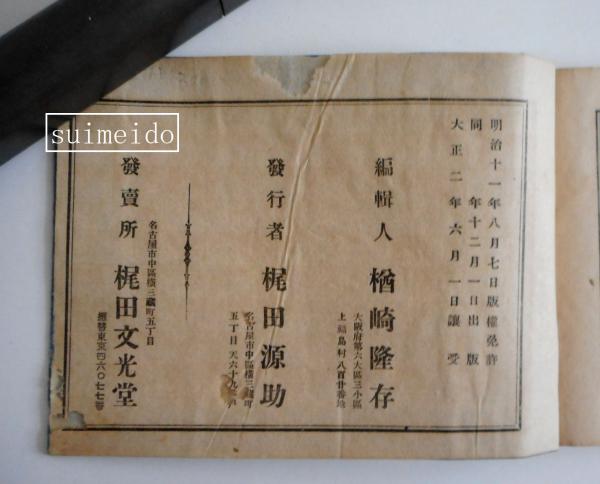 明治十一年八月七日版權免許
同年十二月一日出版
大正二年六月一日讓受
編輯人 楢崎隆存
大阪府第六大區三小區
上福島村八百廿番地
發行者 梶田源助
名古屋市中區横三藏町
五丁目
發賣所 梶田文光堂
名古屋市中區横三藏町五丁目
振替東京四六〇七七番
suimeido